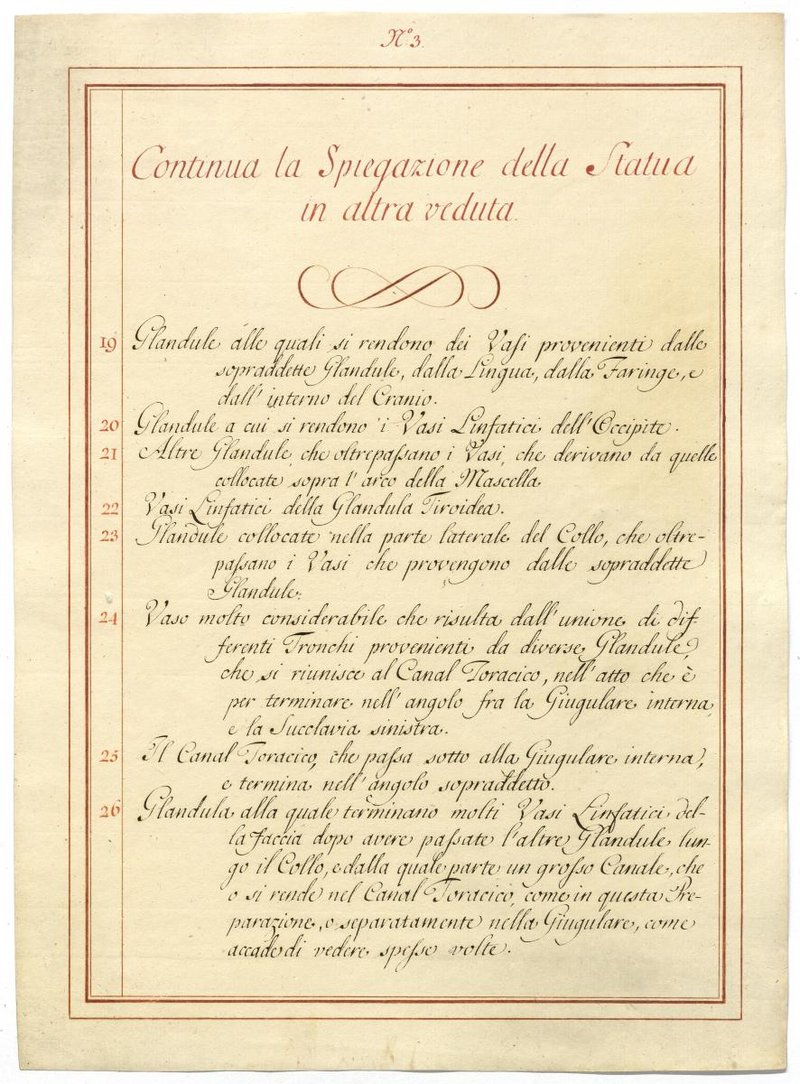 N.º 3.
Continua la Spiegazione della Statua
in altra veduta.
19 Glandule alle quali si rendono dei Vasi provenienti dalle
sopraddette Glandule, dalla Lingua, dalla Faringe, e
dall' interno del Cranio.
20 Glandule a cui si rendono i Vasi Linfatici dell' Occipite.
21 Altre Glandule, che oltrepassano i Vasi, che derivano da quelle
collocate sopra l' arco della Mascella
22 Vasi Linfatici della Glandula Tiroidea.
23 Glandule collocate nella parte laterale del Collo, che oltre-
passano i Vasi che provengono dalle sopraddette
Glandule.
24 Vaso molto considerabile che risulta dall' unione di dif-
ferenti Tronchi provenienti da diverse Glandule,
che si riunisce al Canal Toracico, nell' atto che è
per terminare nell' angolo fra la Giugulare interna,
e la Succlavia sinistra.
25 Il Canal Toracico, che passa sotto alla Giugulare interna,
e termina nell' angolo sopraddetto.
26 Glandula alla quale terminano molti Vasi Linfatici del-
la faccia dopo avere passate l' altre Glandule lun-
go il Collo, e dalla quale parte un grosso Canale, che
o si rende nel Canal Toracico, come in questa Pre-
parazione, o separatamente nella Giugulare, come
accade di vedere spesse volte.